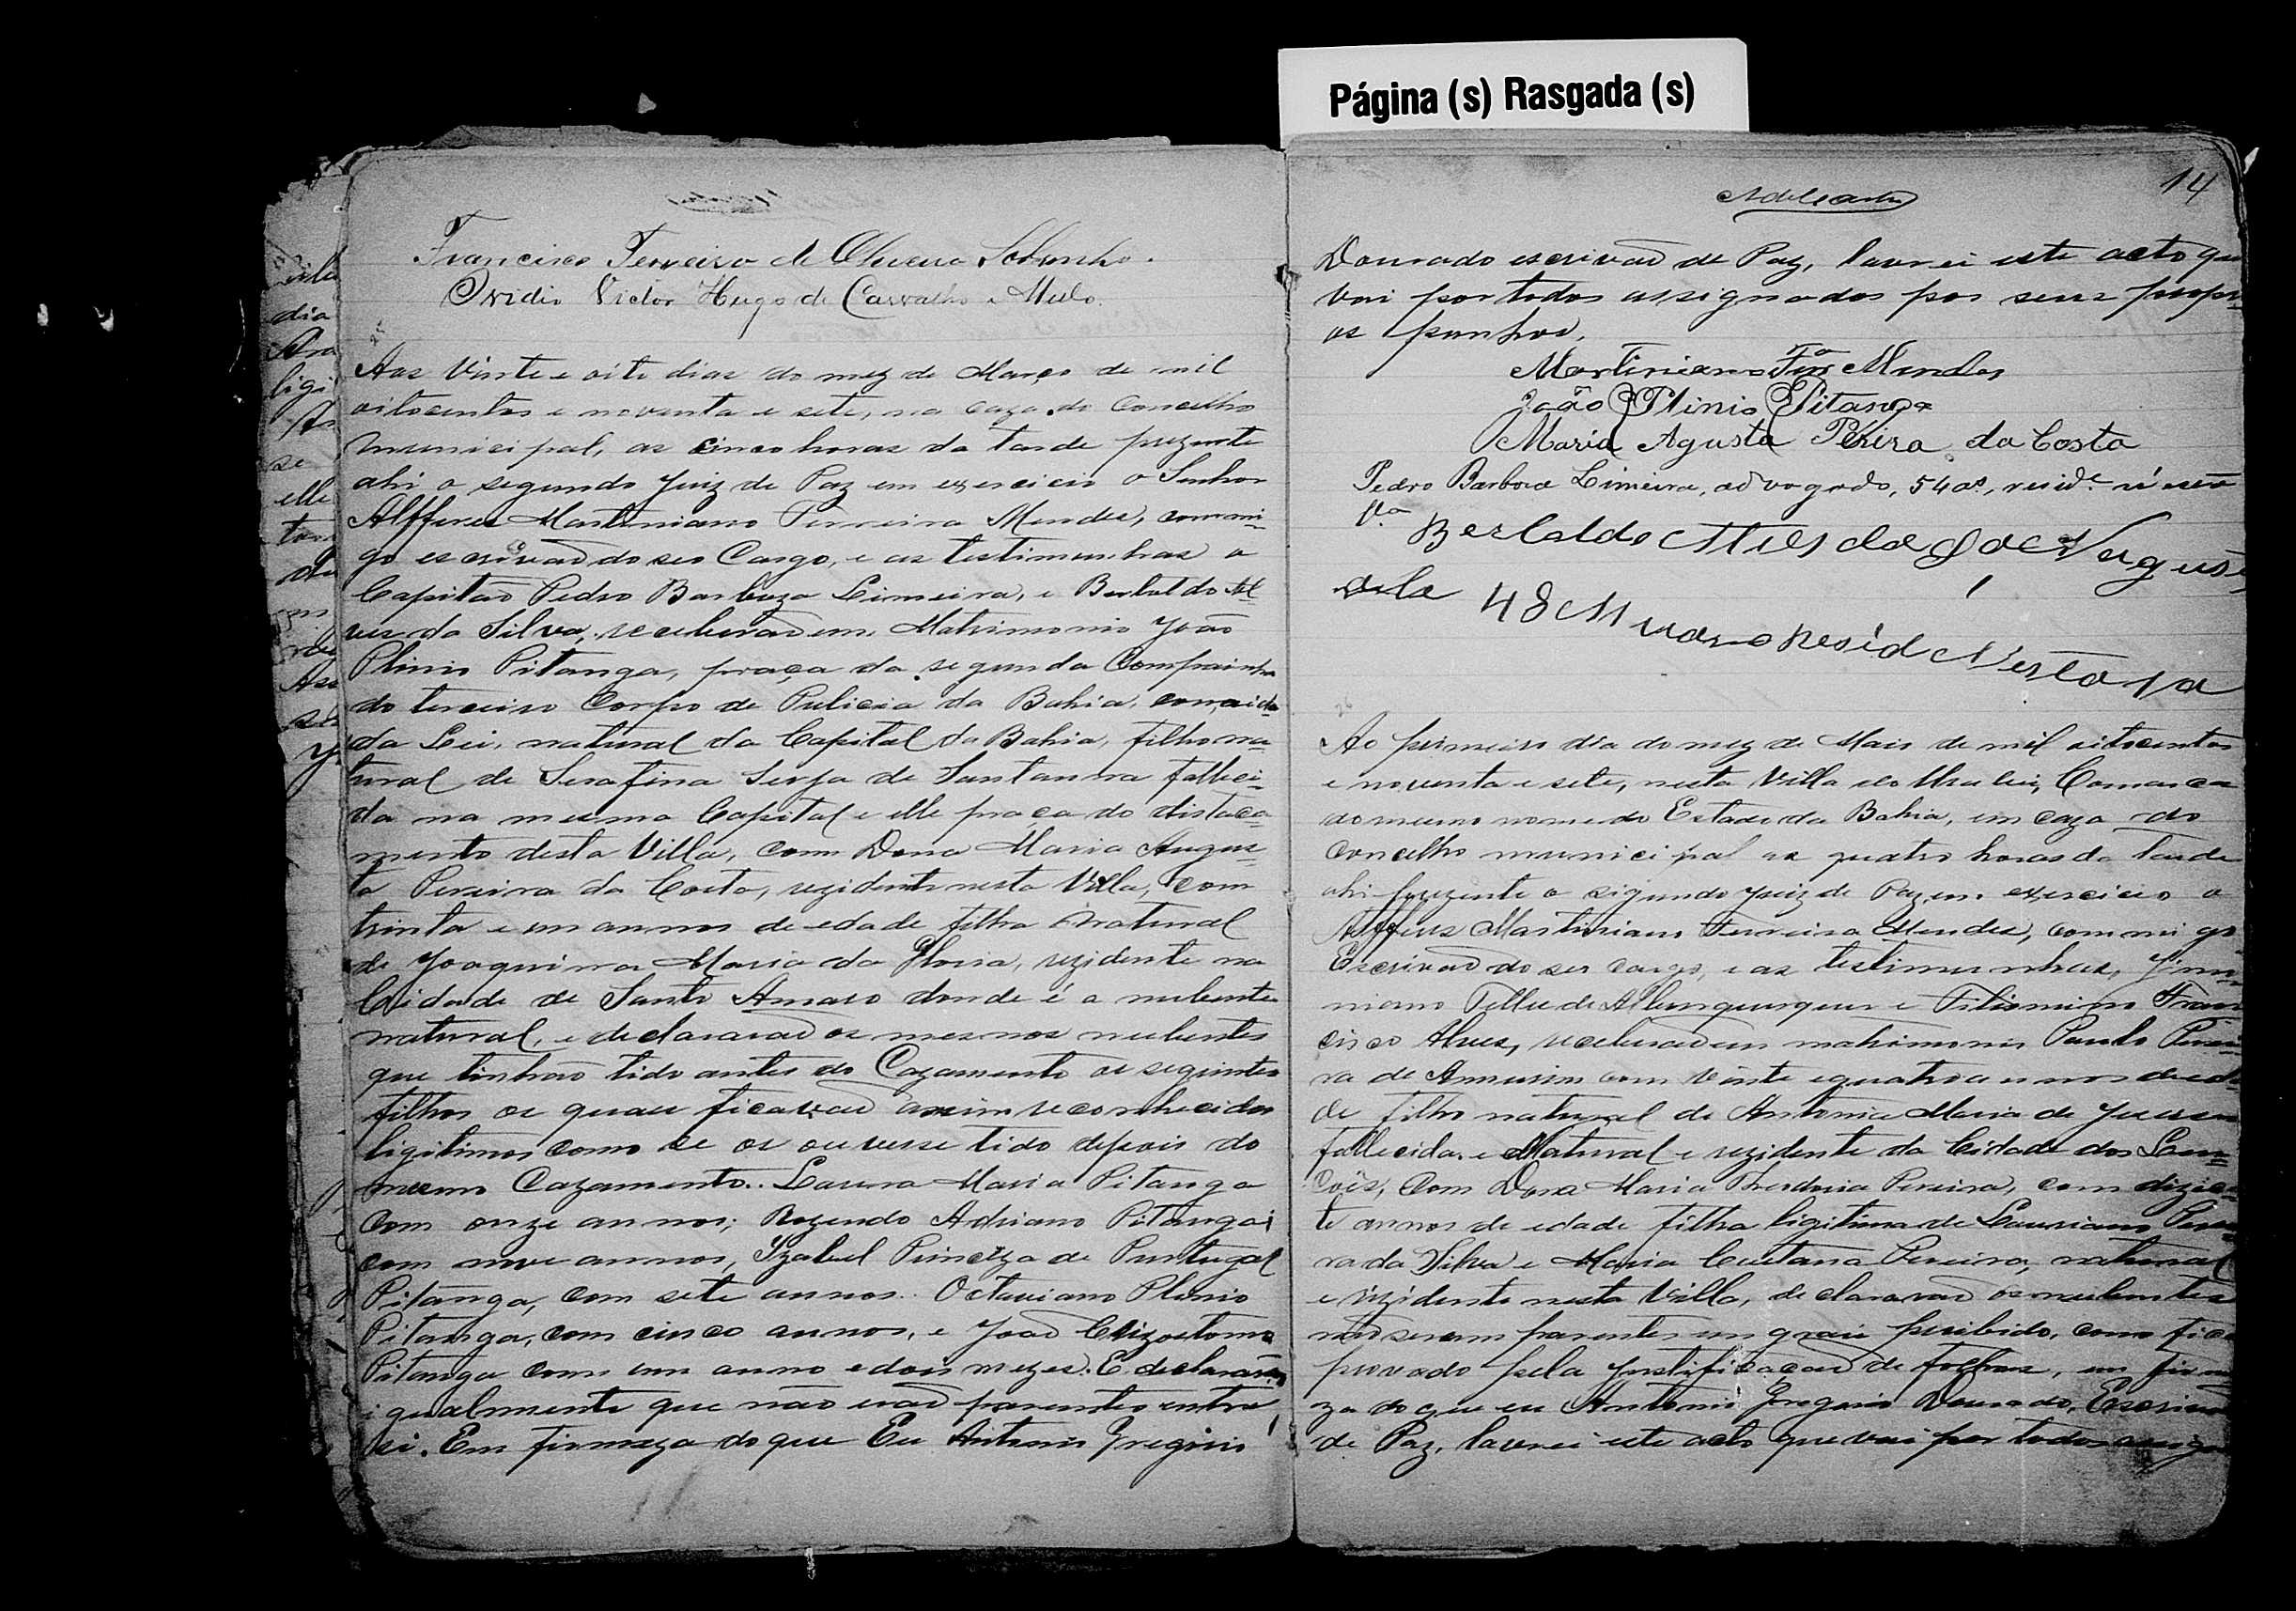 Página (s) Rasgada (s)
Francisco Ferreira de Oliveira Sobrinho.
Ovidio Victor Hugo de Carvalho e Mello.
Aos Vinte e oito dias do mez de Março de mil
oitocentos e noventa e sete, na caza do Concelho
Municipal, as cinco horas da tarde prezente
ahi o segundo Juiz de Paz em exercicio o Senhor
Alfferes Martiniano Ferreira Mendes, commi-
go escrivaõ do seo Cargo, e as testimunhas o
Capitaõ Pedro Barboza Limeira, e Bertoldo Al-
ves da Silva, receberaõ em Matrimonio João
Plinio Pitanga, praça da segunda Companhia
do terceiro Corpo de Pulicia da Bahia, com, aidade
da Lei, natural da Capital da Bahia, filho na-
tural de Serafina de Santanna falleci-
da na mesma Capital e elle praça do distaca-
mento desta Villa, com Dona Maria Augus-
ta Pereira da Costa, rezidente nesta Villa, com
trinta e um annos de edade filha natural
de Joaquina Maria da Gloria, rezidente na
Cidade de Santo Amaro donde é a nubente
natural, e declararaõ os mesmos nubentes
que tinhaõ tido antes do Cazamento os seguintes
filhos os quaes ficavaõ assim reconhecidos
ligitimos como se os ouvesse tido depois do
mesmo Cazamento. Laura Maria Pitanga
com onze annos; Rozendo Adriano Pitanga;
com nove annos, Izabel Princeza de Purtugal
Pitanga, com sete annos. Octaviano Plinio
Pitanga, com cinco annos, e Joaõ Crizostomo
Pitanga com um anno e dois mezes. E declararaõ
igualmente que não eraõ parentes entre
si. Em firmeza do que Eu Antonio Gregorio
14
Dourado escrivaõ de Paz, lavrei este acto que
vai por todos assignados por seus propri-
os punhos.
Martiniano Frª Mendes
João Plinio Pitanga
Maria Agusta Pereira da Costa
Pedro Barboza Limeira, advogado, 54 as, resid.e n'esta
Vª
Bertoldo Alves da
48 resid Nesta va
Ao primeiro dia do mez de Maio de mil oitocentos
e noventa e sete, nesta Villa do Comarca
do mesmo nome do Estado da Bahia, em caza do
Concelho municipal as quatro horas da tarde
ahi prezente o sigundo Juiz de Paz em exercicio o
Alfferes Martiniano Ferreira Mendes, commigo
Escrivaõ do seo cargo, e as testimunhas,
Telles de Albunquerque e Filismino Fran-
cisco Alves, receberaõ em matrimonio Paulo Perei-
ra de Amurim com vinte e quatro annos de eda-
de filho natural de Antonia Maria de
fallecida e Natural e rezidente da Cidade dos Len-
çoes, com Dona Maria Pereira, com dizese-
te annos de edade filha ligitima de Lauriano Perei-
ra da Silva e Maria Caetana Pereira, natural
e rezidente nesta Villa, declararaõ os nubentes
naõ serem parentes em gráu proibido, como fica
provado pela justificaçaõ de folhas, em firme-
za do que eu Antonio Gregorio Dourado, Escrivaõ
de Paz, lavrei este acto que vai por todos